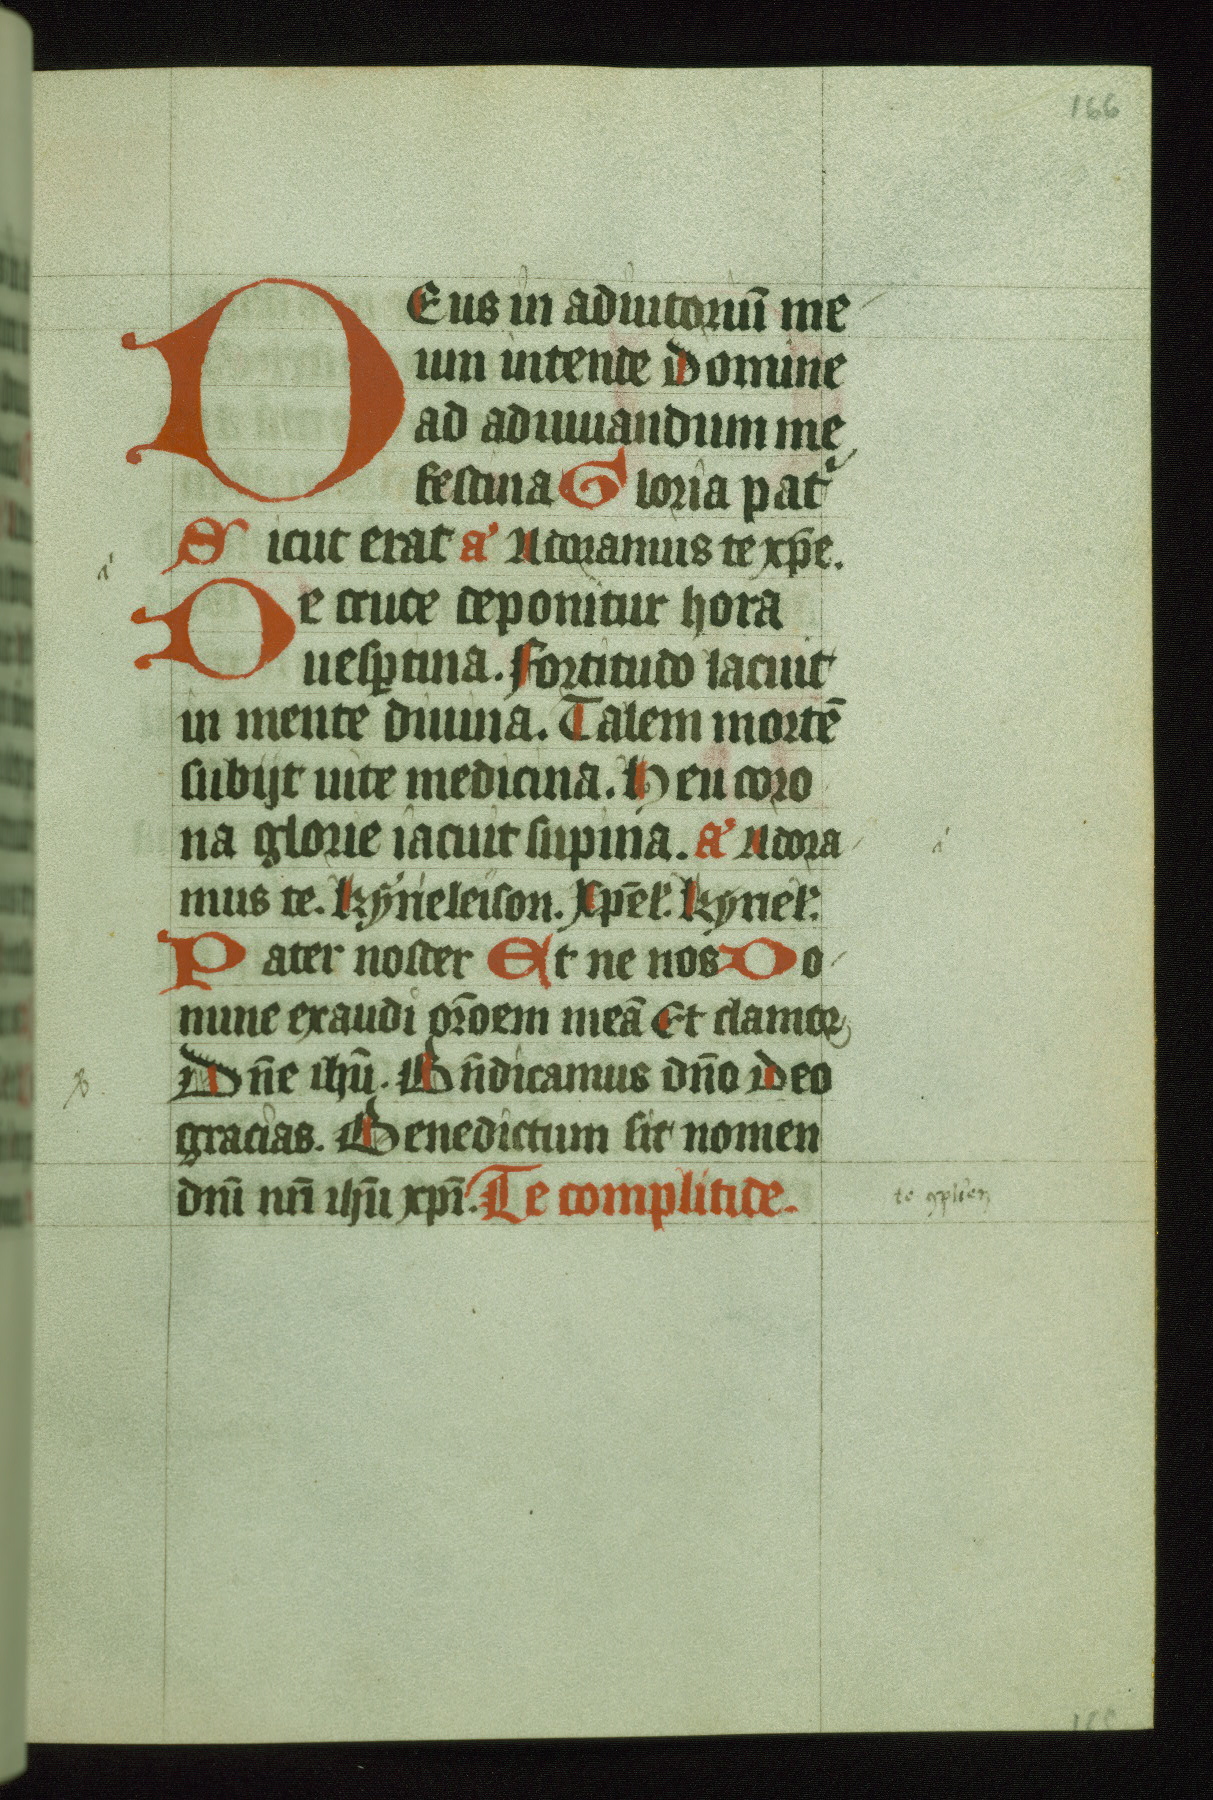 166
DEus in adiutoriū me
um intende Domine
ad adiuuandum me
festina Gloria pat
Sicut erat a' Adoramus te xp̄e.
De cruce deponitur hora
uesꝑtina. Fortitudo lacuit
in mente diuina. Talem mortē
subijt uite medicina. Heu coro
na glorie iacuit supina. a' Adora
mus te. kyrieleison. Xp̄el'. kyriel'.
Pater noster Et ne nos Do
mine exaudi or̄oem meā Et clamor
Dn̄e ihū. Bn̄dicamus dn̄o Deo
gracias. Benedictum sit nomen
dnī nr̄i ihū xpī. Te complitide.
te ꝯplien